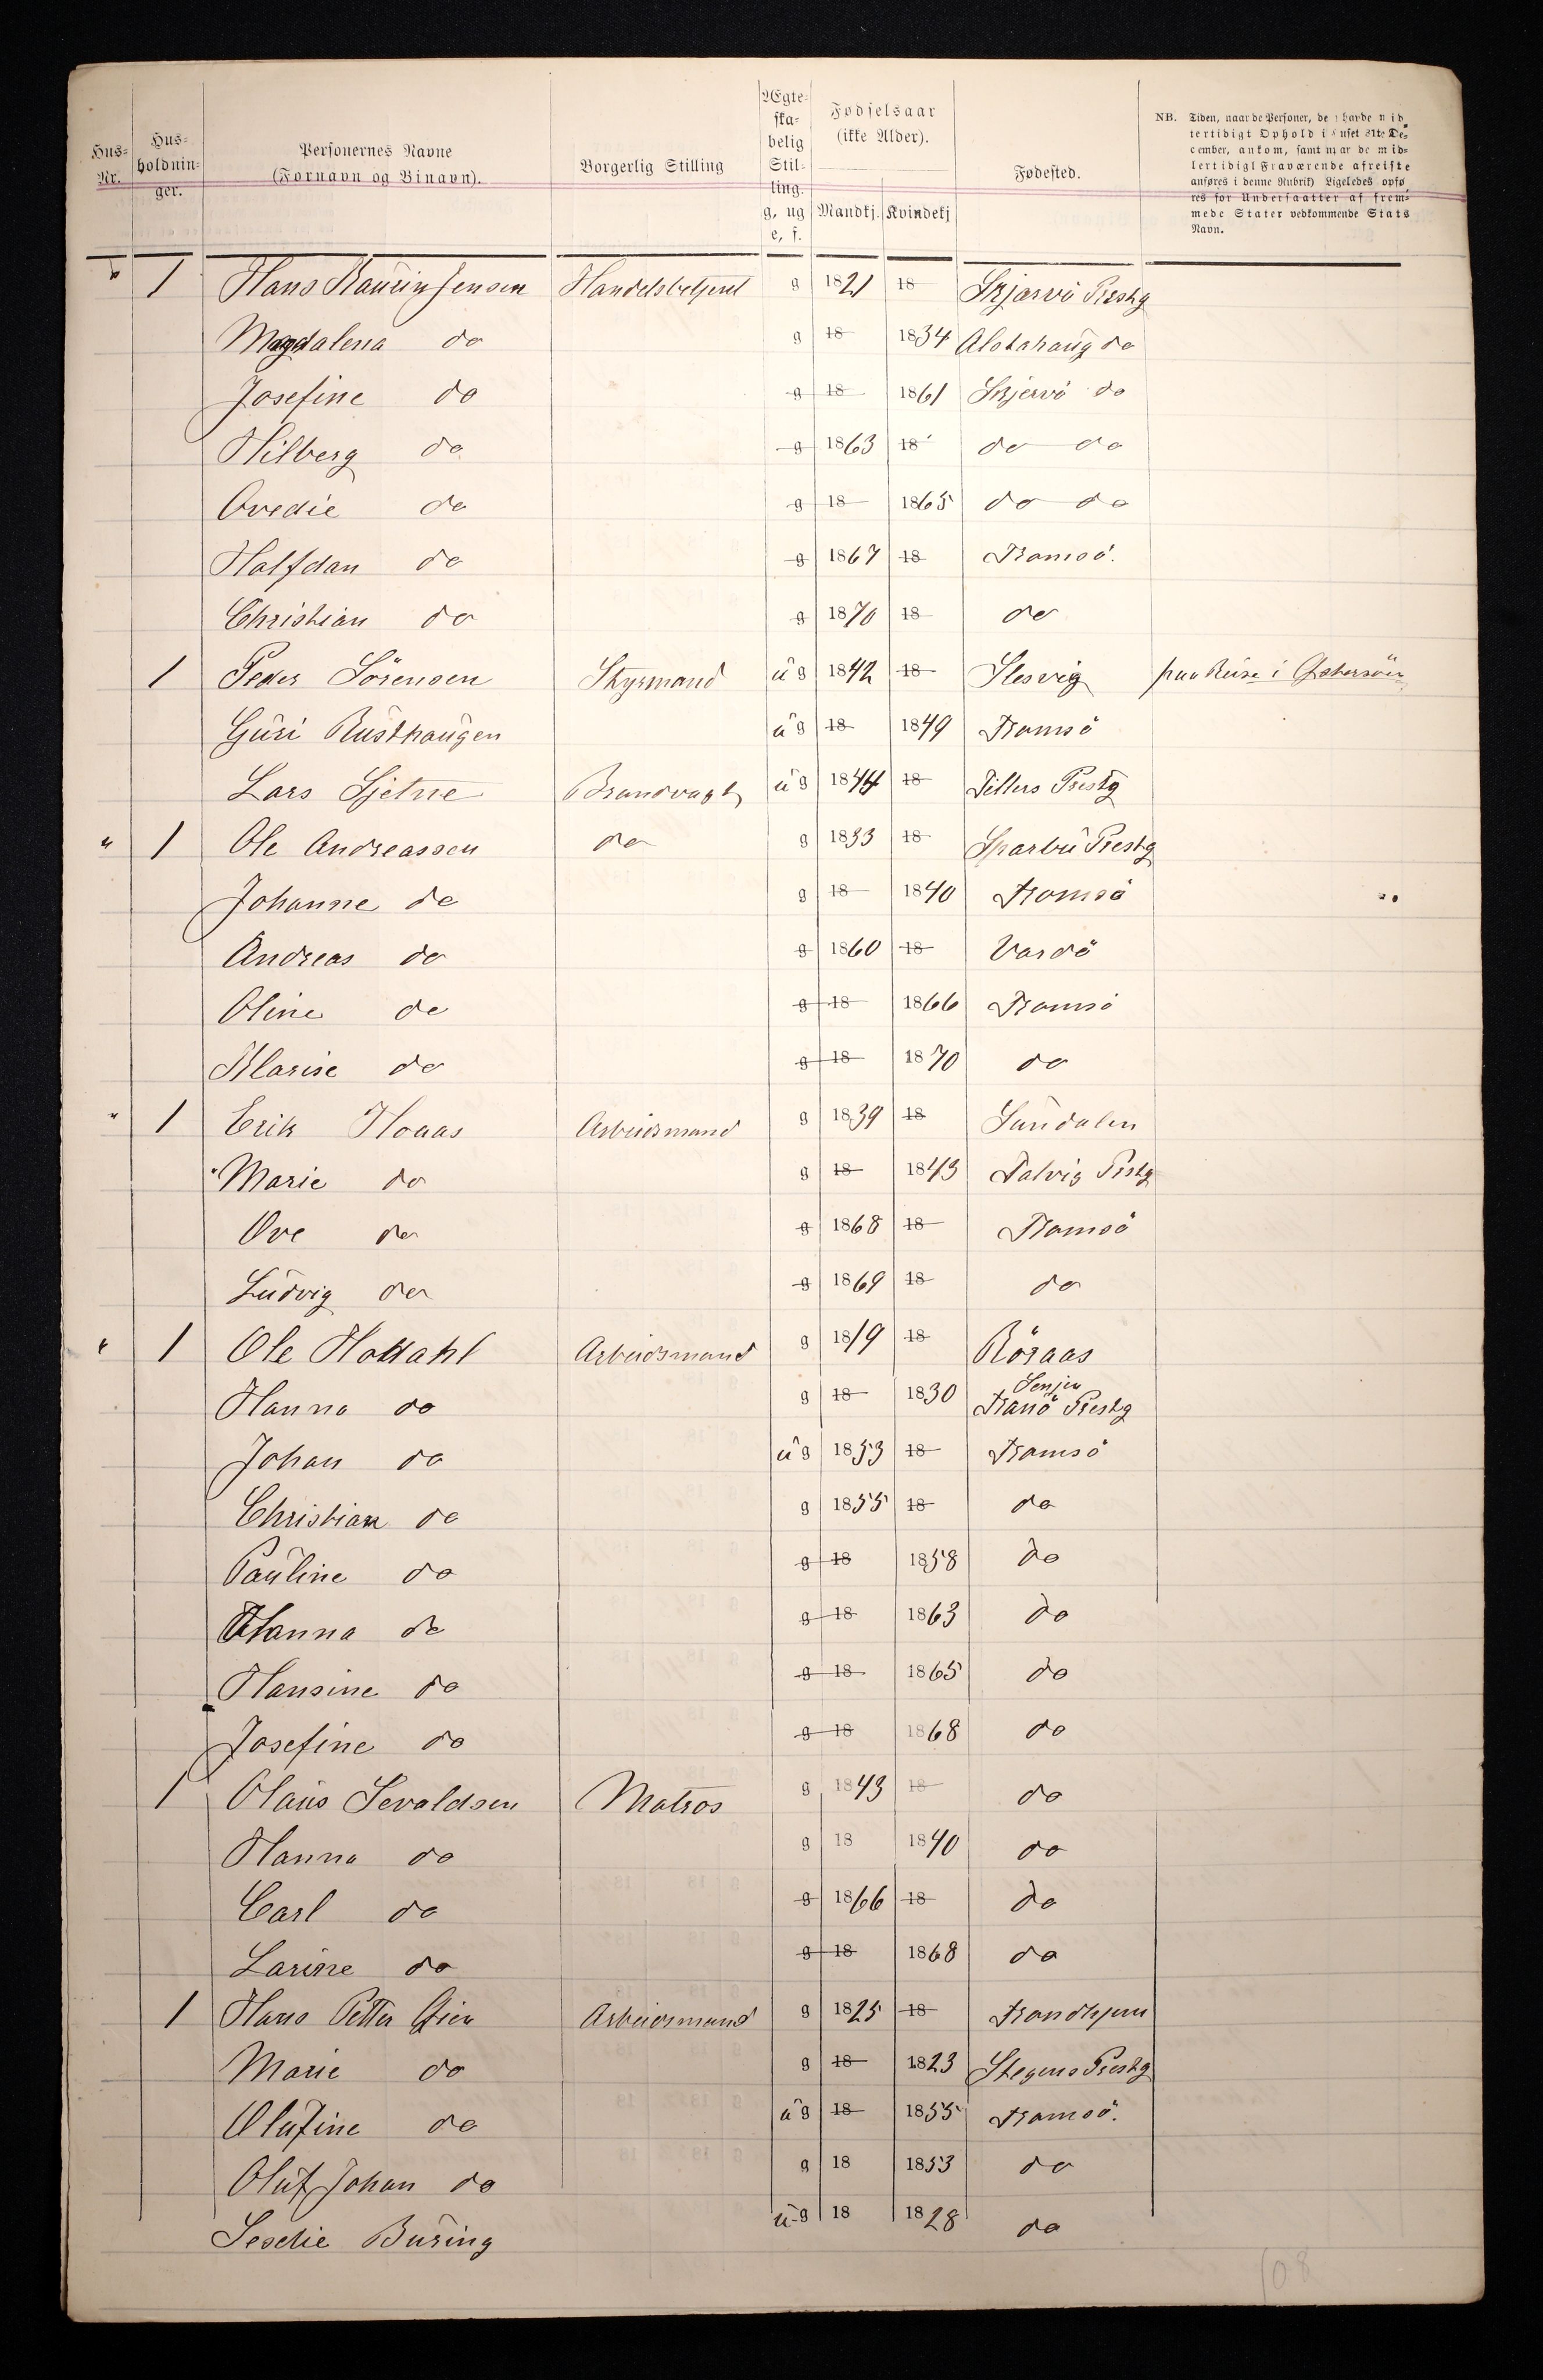 Hus-Nr. Hus-holdnin-ger. Personernes Navne (Fornavn og Binavn). Borgerlig Stilling Ægte-ska-belig Stil-ling. g, ug e, f. Fødselsaar (ikke Alder). Mandkj. Kvindekj Fødested. NB. Tiden, naar de Personer, de havde mid
lertidigt Ophold i Huset 31te De-
cember, ankom, samt naar de mid-
lertidigt Fraværende afreiste
anføres i denne Rubrik) Ligeledes opfø
res for Undersaatter af frem-
mede Stater vedkommende Stats
Navn.
1 Hans Jensen Handelsbetjent g 1821 18 Skjærvö Præstg
Magdalena do g 18 1834 Alstahaug do
Josefine do g 18 1861 Skjervö do
Hilberg do g 1863 18 do do
Ovedie do g 18 1865 do do
Halfdan do g 1867 18 Tromsö.
Christian do g 1870 18 do
1 Peder Sörensen Styrmand ug 1842 18 Slesvig paa Reise i Östersöen
Guri Rusthaugen ug 18 1849 Tromsö
Lars Sjetne Brandvagt ug 1844 18 Tillers Prestg
" 1 Ole Andreassen do g 1833 18 Sparbu Prestg
Johanne do g 18 1840 Tromsö
Andreas do g 1860 18 Vardö
Oline do g 18 1866 Tromsö
Marise do g 18 1870 do
" 1 Erik Hoaas Arbeidsmand g 1839 18 Sundalen
Marie do g 18 1843 Talvig Prstg
Ove do g 1868 18 Tromsö
Ludvig do g 1869 18 do
" 1 Ole Holdahl Arbeidsmand g 1819 18 Röraas
Senjen
Hanna do g 18 1830 Tranö Prestg
Johan do ug 1853 18 Tromsö
Christian do g 1855 18 do
Pauline do g 18 1858 do
Hanna do g 18 1863 do
Hansine do g 18 1865 do
Josefine do g 18 1868 do
1 Olaus Sevaldsen Matros g 1843 18 do
Hanna do g 18 1840 do
Carl do g 1866 18 do
Larine do g 18 1868 do
1 Hans Petter Öien Arbeidsmand g 1825 18 Trondhjem
Marie do g 18 1823 Stegens Prestg
Olufine do ug 18 1855 Tromsö.
Oluf Johan do g 18 1853 do
Buring ug 18 1828 do
108